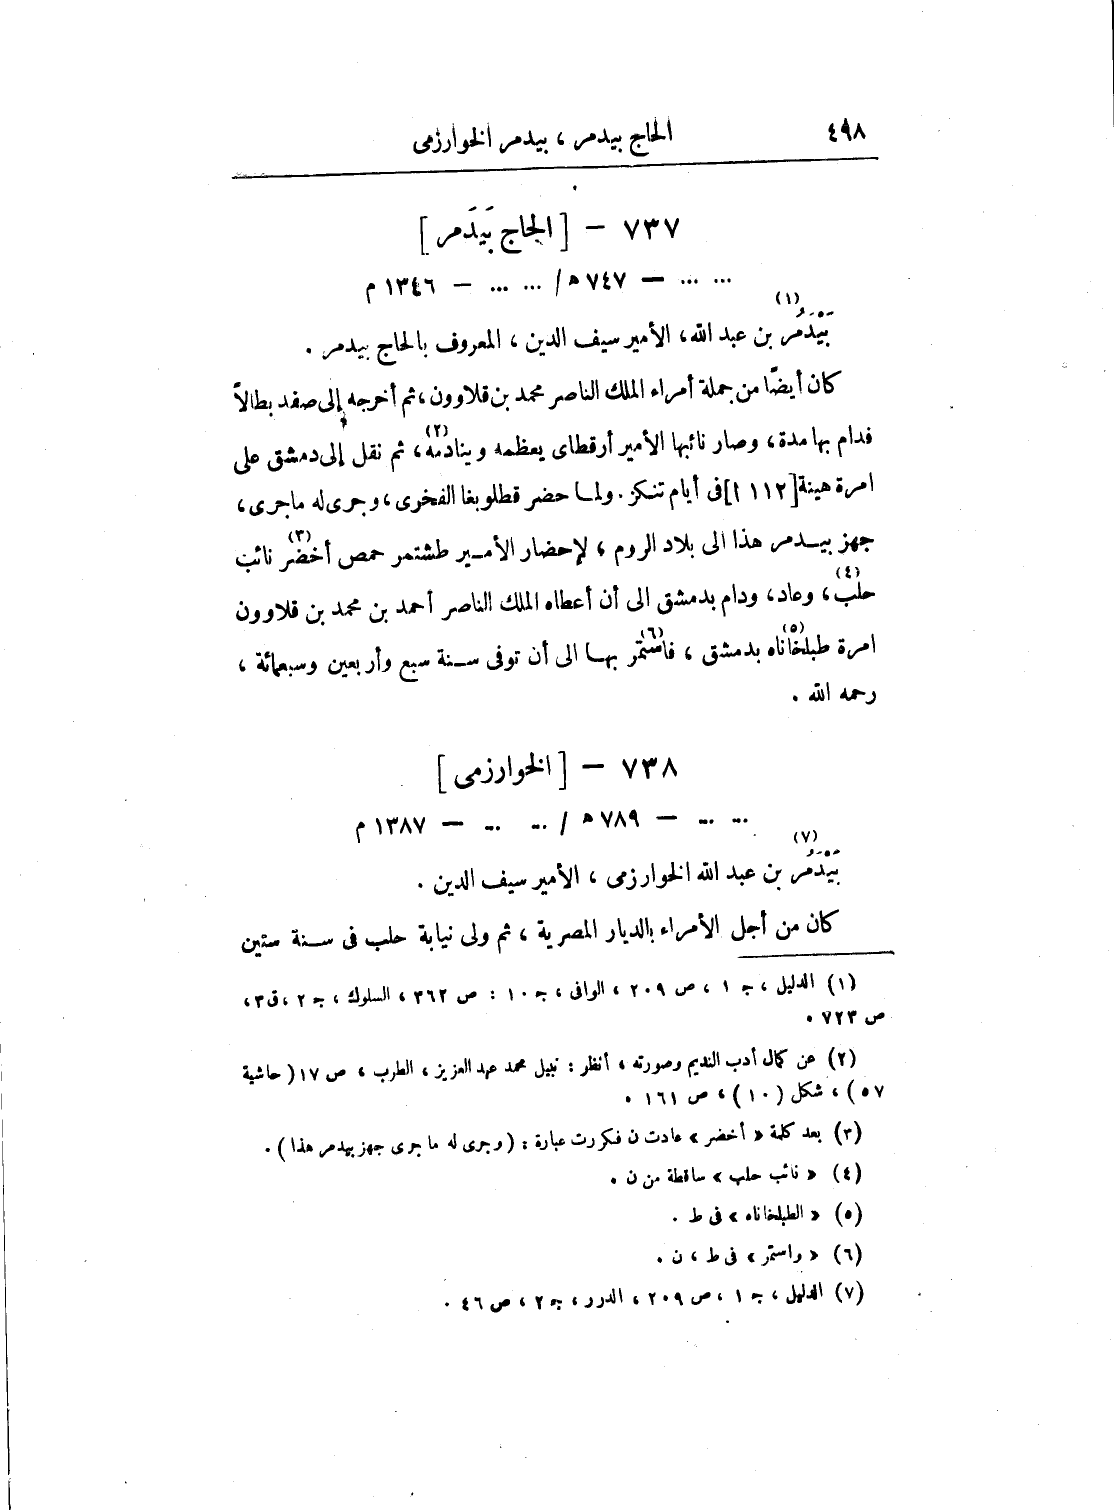 ٤٩٨ الحاج بيدمر ، بيدمر الخوارزمى
٧٣٧ – [ الحاج بَيدَمر ]
... ... – ٧٤٧ ه‍ / ... ... – ١٣٤٦ م
بَيْدَمُر (١) بن عبد الله، الأمير سيف الدين ، المعروف بالحاج بيدمر .
كان أيضًا من جملة أمراء الملك الناصر محمد بن قلاوون ، ثم أخرجه إلى صفد بطالاً
فدام بها مدة ، وصار نائبها الأمير أرقطاى يعظمه وينادمه (٢) ، ثم نقل إلى دمشق على
امرة هينة [ ١١٢ أ] فى أيام تنكز . ولما حضر قطلوبغا الفخرى ، وجرى له ماجرى ،
جهز بيدمر هذا الى بلاد الروم ، لإحضار الأمير طشتمر حمص أخضر (٣) نائب
حلب (٤) ، وعاد ، ودام بدمشق الى أن أعطاه الملك الناصر أحمد بن محمد بن قلاوون
امرة طبلخاناه (٥) بدمشق ، فاستمر (٦) بها الى أن توفى سنة سبع وأربعين وسبعمائة ،
رحمه الله .
٧٣٨ – [ الخوارزمى ]
... ... – ٧٨٩ ه‍ / ... ... – ١٣٨٧ م
بَيْدَمُر (٧) بن عبد الله الخوارزمى ، الأمير سيف الدين .
كان من أجل الأمراء بالديار المصرية ، ثم ولى نيابة حلب فى سنة ستين
(١) الدليل ، ج ١ ، ص ٢٠٩ ، الوافى ، ج ١٠ : ص ٣٦٢ ، السلوك ، ج ٢ ، ق ٣ ،
ص ٧٢٣ .
(٢) عن كمال أدب النديم وصورته ، أنظر : نبيل محمد عبد العزيز ، الطرب ، ص ١٧ ( حاشية
٥٧ ) ، شكل ( ١٠ ) ، ص ١٦١ .
(٣) بعد كلمة « أخضر » عادت ن فكررت عبارة : ( وجرى له ما جرى جهز بيدمر هذا ) .
(٤) « نائب حلب » ساقطة من ن .
(٥) « الطبلخاناه » فى ط .
(٦) « واستمر » فى ط ، ن .
(٧) الدليل ، ج ١ ، ص ٢٠٩ ، الدرر ، ج ٢ ، ص ٤٦ .